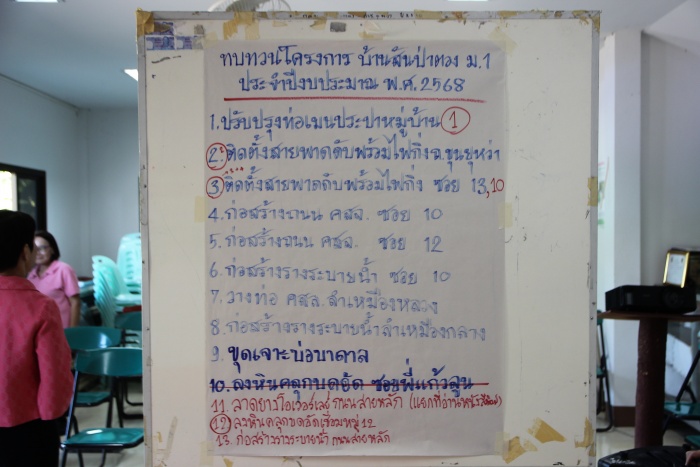 ทบทวนโครงการ บ้านสันป่าตวง ม.1
ประจำปีงบประมาณ พ.ศ.2568
1.ปรับปรุงท่อเมนประปาหมู่บ้าน 1
2.ติดตั้งสายพาดดับพร้อมไฟกิ่งถ.ขุนยุหว่า
3.ติดตั้งสายพาดดับพร้อมไฟกิ่ง ซอย 13,10
4.ก่อสร้างถนน คสจ. ซอย 10
5.ก่อสร้างถนน คสจ. ซอย 12
6.ก่อสร้างรางระบายน้ำ ซอย 10
7.วางท่อ คสล.ลำเหมืองหลวง
8.ก่อสร้างรางระบายน้ำลำเหมืองกลาง
9.ขุดเจาะบ่อบาดาล
10.ลงหินคลุกบดอัด ซอยพี่แก้วลูน
11. ลาดยางโอเวอร์เลย์ ถนนสายหลัก (แยกที่อ่าน
12 ลงหินคลุกบดอัดเชื่อมหมู่ 12
13. ก่อสร้างรางระบายน้ำ ถนนสายหลัก